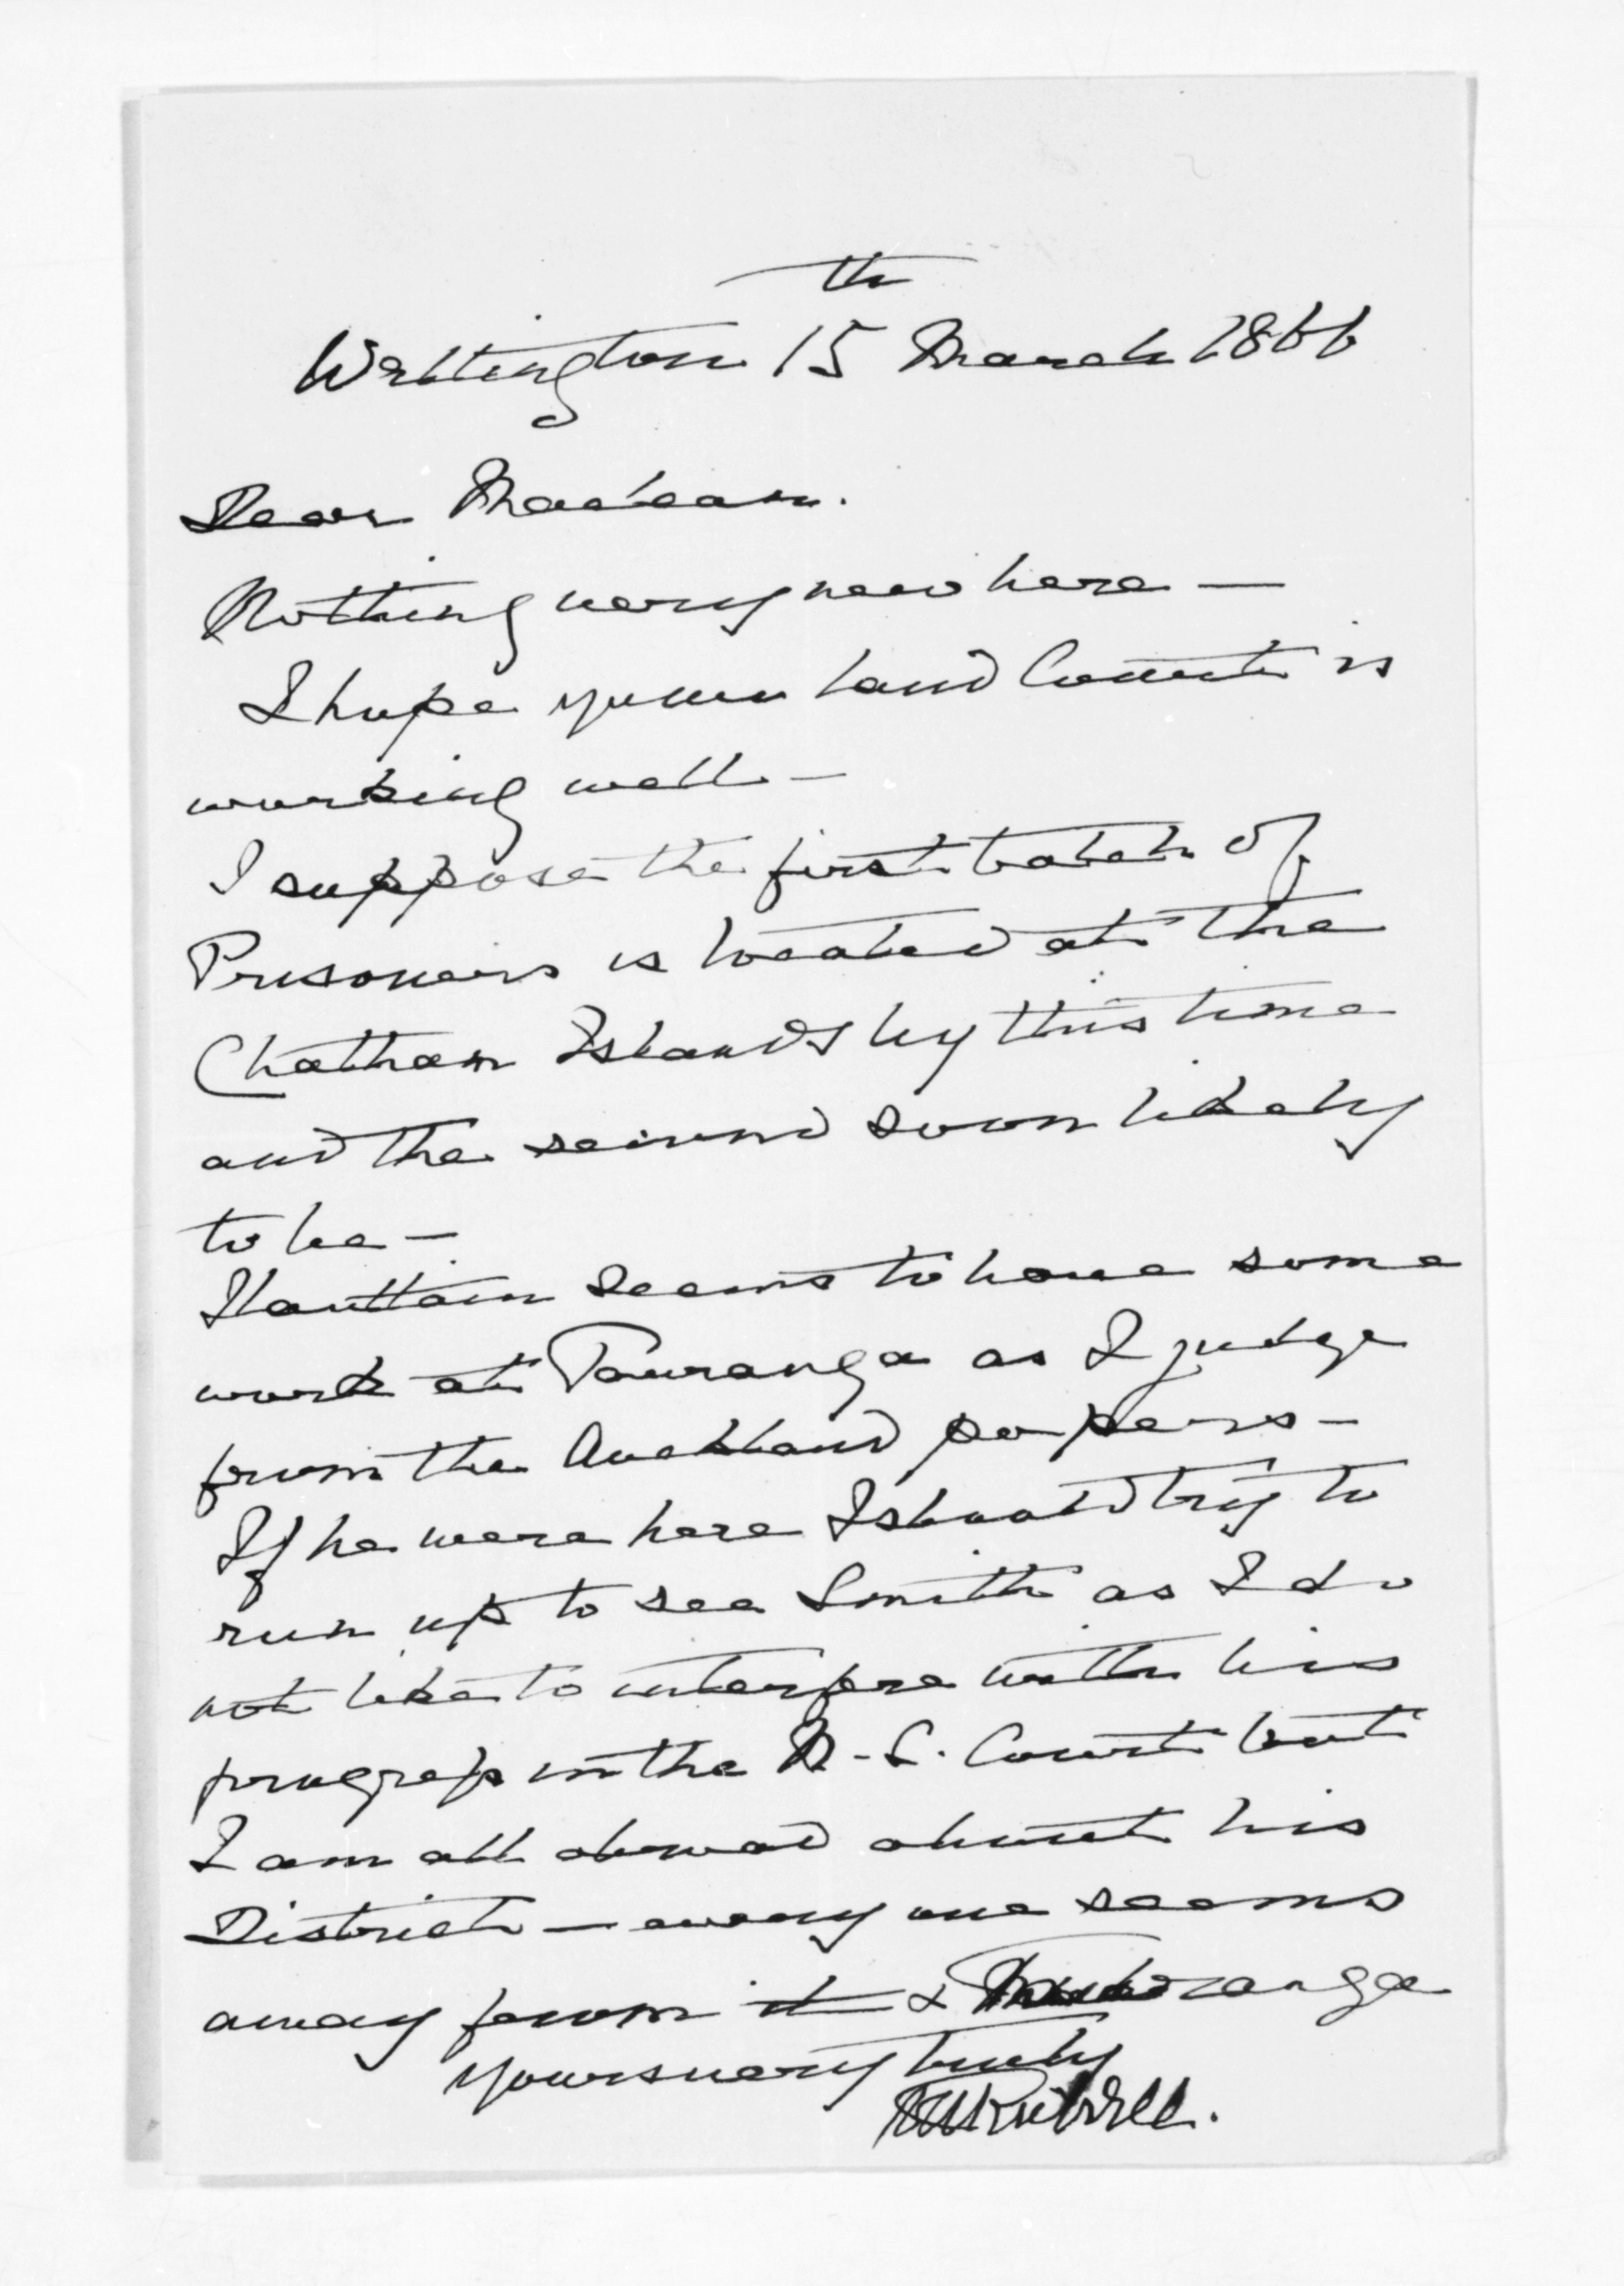 Wellington 15th March 1866
Dear Maclean.
Nothing very new here —
I hope your land Court is
working well —
I suppose the first batch of
Prisoners is located at the
Chatham Islands by this time
and the second soon likely
to be —
Haultain seems to have some
work at Tauranga as I judge
from the Auckland papers —
If he were here I should try to
run up to see Smith as I do
not like to interfere with his
progress in the N. L. Court but
I am all abroad about his
District — every one seems
away from it &
Yours very truly